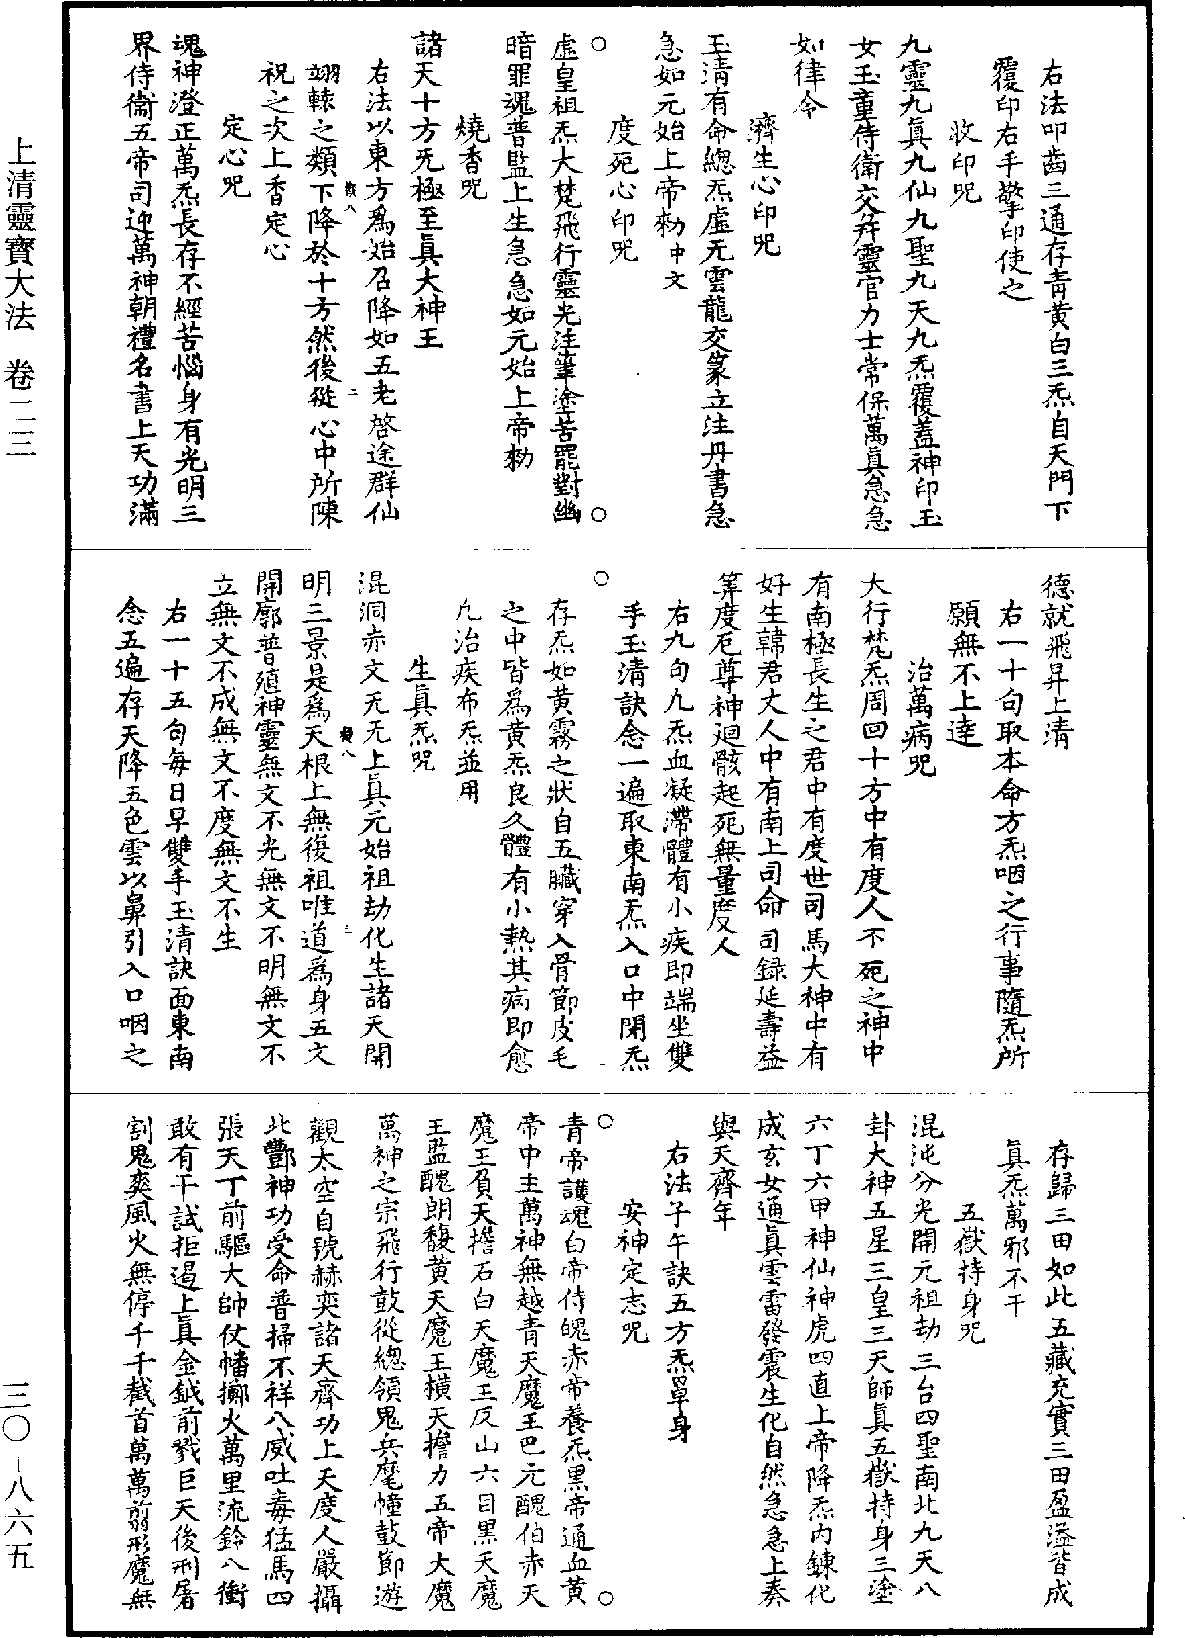 上清靈寶大法　卷二三
三〇－八六五
右法叩齒三通存青黃白三炁自天門下
覆印右手擎印使之
收印咒
九靈九真九仙九聖九天九炁覆蓋神印玉
女玉童侍衛交并靈官力士常保萬真急急
如律令
濟生心印咒
玉清有命總炁虛无雲龍交篆立注丹書急
急如元始上帝勑中文
度死心印咒
虛皇祖炁大梵飛行靈光注筆塗苦罷對幽
暗罪魂普監上生急急如元始上帝勑
燒香咒
諸天十方旡極至真大神王
右法以東方為始召降如五老啓途群仙
翊轅之類下降於十方然後從心中所陳
祝之次上香定心
定心咒
魂神澄正萬炁長存不經苦惱身有光明三
界侍衛五帝司迎萬神朝禮名書上天功滿
德就飛昇上清
右一十句取本命方炁咽之行事隨炁所
願無不上達
治萬病咒
大行梵炁周回十方中有度人不死之神中
有南極長生之君中有度世司馬大神中有
好生韓君丈人中有南上司命司録延壽益
筭度厄尊神廻骸起死無量度人
右九句九炁血凝滯體有小疾即端坐雙
手玉清訣念一遍取東南炁入口中閉炁
存炁如黃霧之狀自五臟穿入骨節皮毛
之中皆為黃炁良久體有小熱其病即愈
凡治疾布炁並用
生真炁咒
混洞赤文无无上真元始祖劫化生諸天開
明三景是為天根上無復祖唯道為身五文
開廓普殖神靈無文不光無文不明無文不
立無文不成無文不度無文不生
右一十五句每日早雙手玉清訣面東南
念五遍存天降五色雲以鼻引入口咽之
存歸三田如此五藏充實三田盈溢皆成
真炁萬邪不干
五嶽持身咒
混沌分光開元祖劫三台四聖南北九天八
卦大神五星三皇三天師真五嶽持身三塗
六丁六甲神仙神虎四直上帝降炁內鍊化
成玄女通真雲雷發震生化自然急急上奏
與天齊年
右法子午訣五方炁罩身
安神定志咒
青帝護魂白帝侍魄赤帝養炁黑帝通血黃
帝中主萬神無越青天魔王巴元醜伯赤天
魔王負天擔石白天魔王反山六目黑天魔
王監醜朗馥黃天魔王橫天擔力五帝大魔
萬神之宗飛行鼓從總領鬼兵麾幢鼓節遊
觀太空自號赫奕諸天齊功上天度人嚴攝
北酆神功受命普掃不祥八威吐毒猛馬四
張天丁前驅大帥仗幡擲火萬里流鈴八衝
敢有干試拒遏上真金鉞前戮巨天後刑屠
割鬼爽風火無停千千截首萬萬剪形魔無